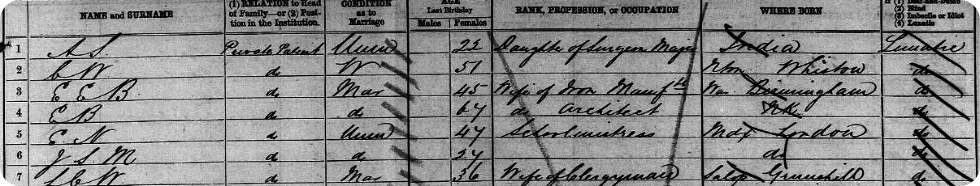 NAME and SURNAME (1) RELATION to Head of Family—or (2) Position in the Institution. CONDITION as to Marriage AGE Last Birthday Males Females RANK, PROFESSION, or OCCUPATION WHERE BORN (1) Deaf-and-Dumb (2) Blind (3) Imbecile or Idiot (4) Lunatic
1 A. S. Private Patient Unm 22 Daughter of Surgeon Major India Lunatic
2 C W do W 51 Whiston do
3 E E B do Mar 45 Wife of Iron Manufr War Birmingham do
4 E B do do 67 do Architect N.K. do
5 E N do Unm 47 Schoolmistress Mdx London do
6 J S M do do 27 do do
7 C W do Mar 36 Wife of Clergyman Salop do